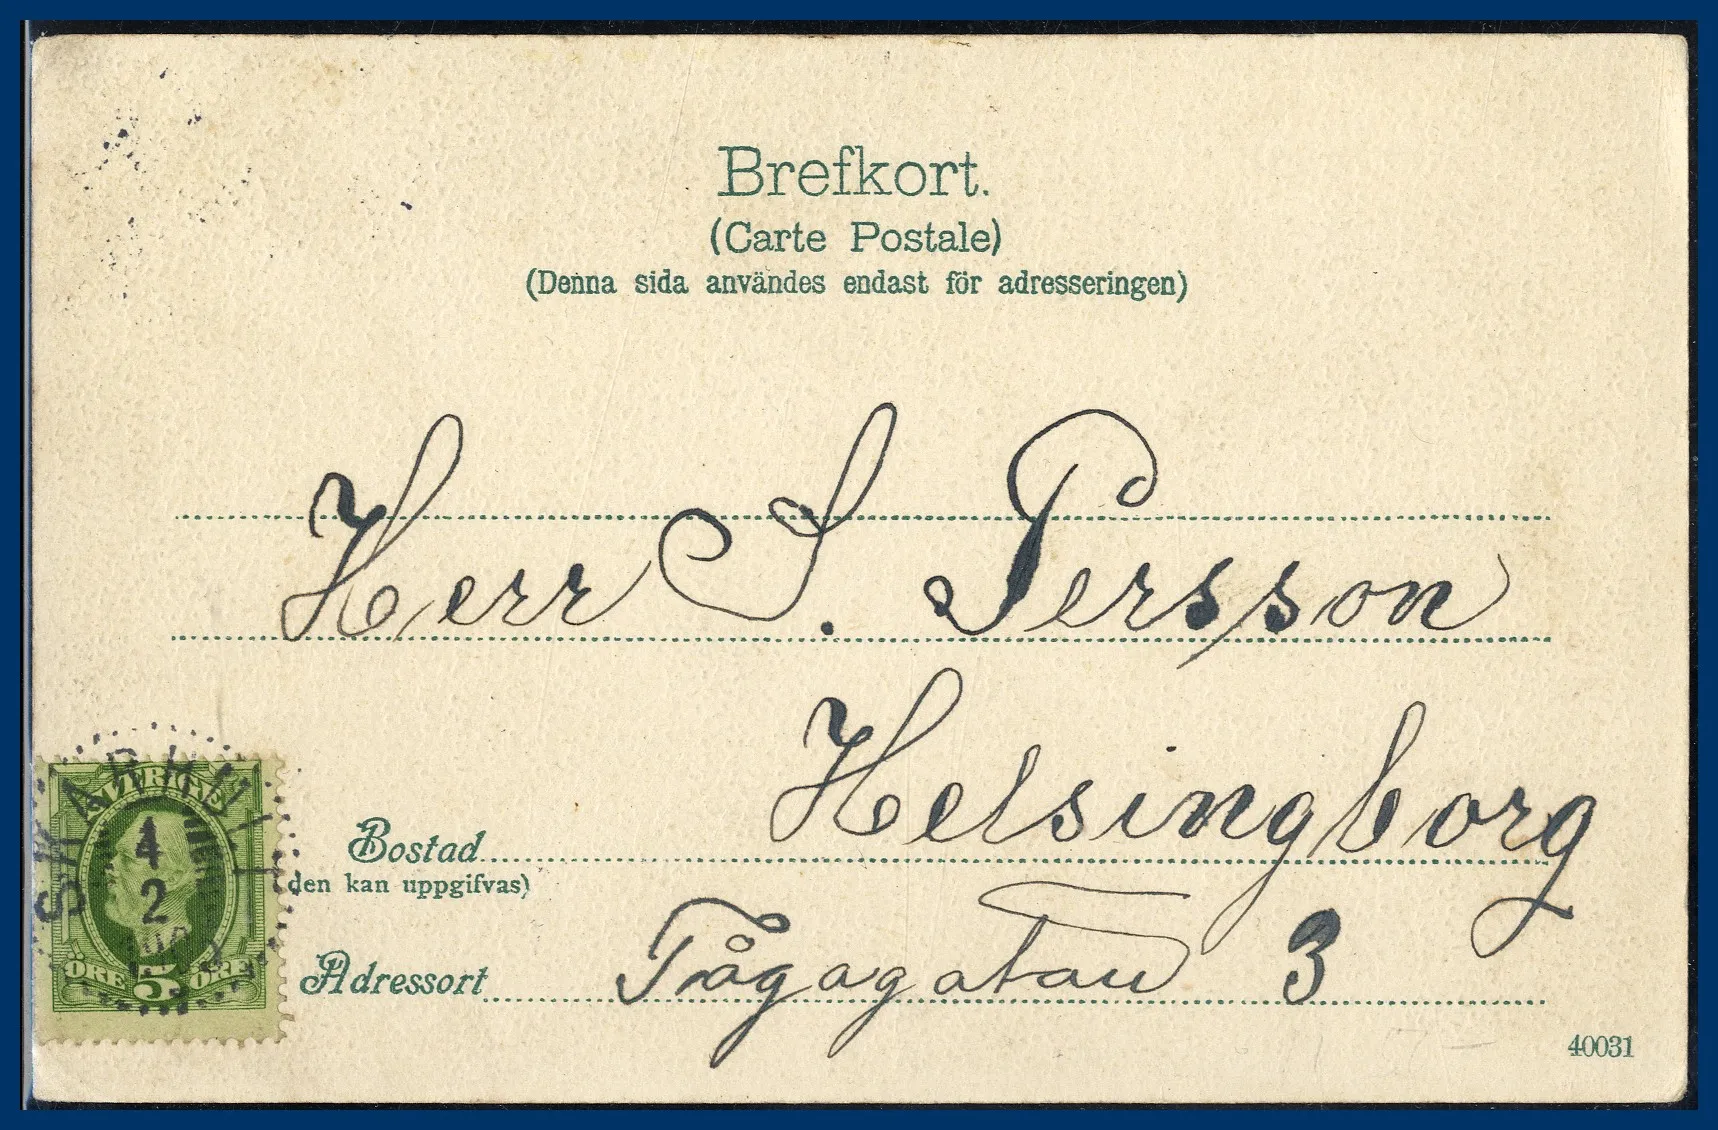 Brefkort.
(Carte Postale)
(Denna sida användes endast för adresseringen)
Herr S. Persson
Helsingborg
Bostad
(den kan uppgifvas)
Tågagatan 3
Adressort
SVERIGE
ÖRE 5 ÖRE
SKARHULT
4
2
40031